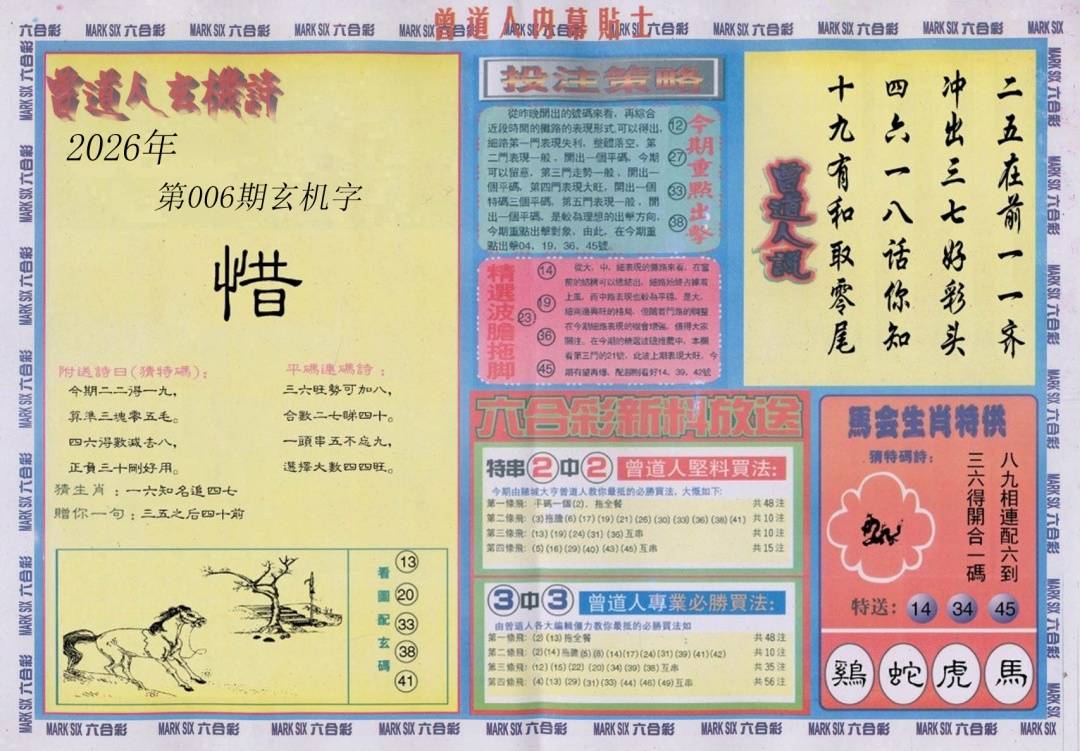 曾道人内幕貼士
MARK SIX 六合彩
曾道人玄機詩
2026年
第006期玄机字
惜
附送詩曰(猜特碼)：
今期二二得一九，
算準三塊零五毛。
四六得數減去八，
正負三十剛好用。
平碼連碼詩：
三六旺勢可加八，
合數二七睇四十。
一頭串五不忘九，
選擇大數四四旺。
猜生肖：一六知名追四七
贈你一句：三五之后四十前
看圖配玄碼
13
20
33
38
41
投注策略
從昨晚開出的號碼來看，再綜合
近段時間的攤路的表現形式，可以得出，
細路第一門表現失利，整體落空，第
二門表現一般，開出一個平碼，今期
可以留意，第三門走勢一般，開出一
個平碼，第四門表現大旺，開出一個
特碼三個平碼，第五門表現一般，開
出一個平碼，是較為理想的出擊方向，
今期重點出擊對象，由此，在今期重
點出擊04，19，36，45號。
今期重點出擊
12
27
33
38
精選波膽拖脚
14
19
23
36
45
從大，中，細表現的攤路來看，在當
上風，而中路表現也較為平穩，是大，
在今期細路表現的機會增強，值得大家
看第三門的21號，此波上期表現大旺，今
期有望再爆，配腳則看好14，39，42號
曾道人說
二五在前一一齐
冲出三七好彩头
四六一八话你知
十九有和取零尾
六合彩新料放送
特串2中2 曾道人堅料買法：
今期由賭城大亨曾道人教你最抵的必勝買法，大慨如下：
第一條飛：平碼一個(2)，拖全餐 共48注
第二條飛：(3)拖膽(6)(17)(19)(21)(26)(30)(33)(36)(38)(41) 共10注
第三條飛：(13)(19)(24)(31)(35)互串 共10注
第四條飛：(5)(16)(29)(40)(43)(45)互串 共15注
3中3 曾道人專業必勝買法：
由曾道人各大編輯僵力教你最抵的必勝買法如
第一條飛：(2)(13)拖全餐 共48注
第二條飛：(2)(14)拖膽(5)(8)(14)(17)(24)(31)(39)(41)(42) 共10注
第三條飛：(12)(15)(22)(20)(34)(39)(38)互串 共35注
第四條飛：(4)(13)(29)(31)(33)(44)(46)(49)互串 共56注
馬会生肖特供
猜特碼詩：
八九相連配六到
三六得開合一碼
特送：14 34 45
鷄 蛇 虎 馬
MARK SIX 六合彩